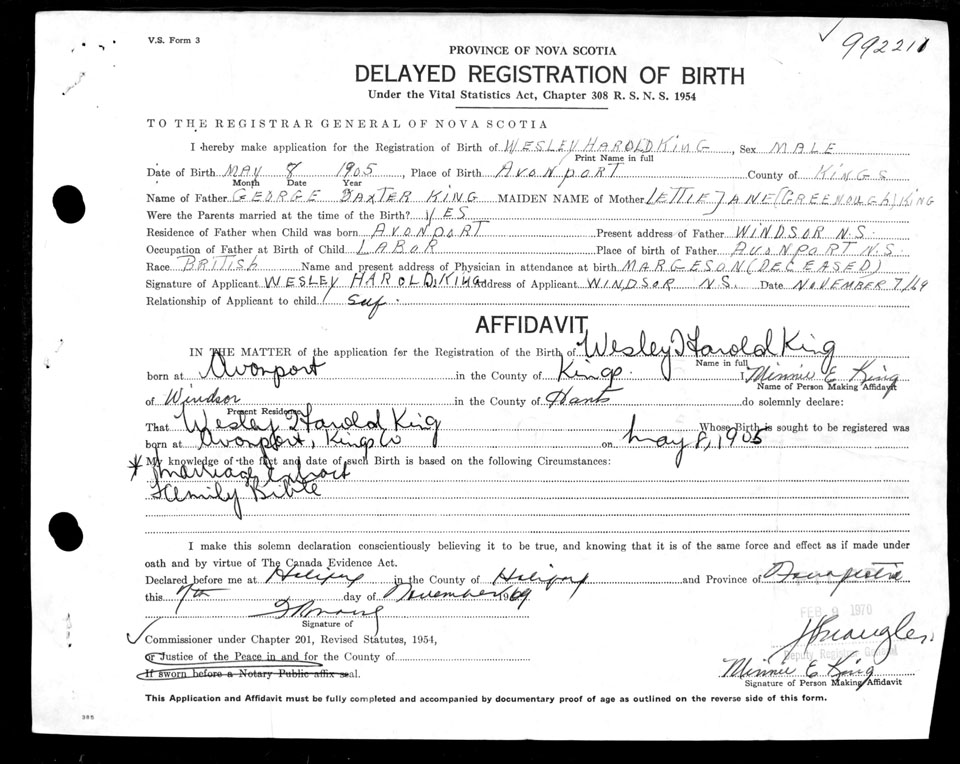 V.S. Form 3
992211
PROVINCE OF NOVA SCOTIA
DELAYED REGISTRATION OF BIRTH
Under the Vital Statistics Act, Chapter 308 R. S. N. S. 1954
TO THE REGISTRAR GENERAL OF NOVA SCOTIA
I hereby make application for the Registration of Birth of WESLEY HAROLD KING, Sex MALE
Print Name in full
Date of Birth MAY 8 1905, Place of Birth AVONPORT County of KINGS
Month Date Year
Name of Father GEORGE BAXTER KING MAIDEN NAME of Mother LETTIE JANE (GREENOUGH) KING
Were the Parents married at the time of the Birth? YES
Residence of Father when Child was born AVONPORT Present address of Father WINDSOR N.S.
Occupation of Father at Birth of Child LABOR Place of birth of Father AVONPORT N.S.
Race BRITISH Name and present address of Physician in attendance at birth MARGESON (DECEASED)
Signature of Applicant WESLEY HAROLD KING Address of Applicant WINDSOR N.S. Date NOVEMBER 7/69
Relationship of Applicant to child Self.
AFFIDAVIT
IN THE MATTER of the application for the Registration of the Birth of Wesley Harold King
Name in full
born at Avonport in the County of Kings. I Minnie E King
Name of Person Making Affidavit
of Windsor in the County of Hants do solemnly declare:
Present Residence
That Wesley Harold King Whose Birth is sought to be registered was
born at Avonport, Kings Co on May 8, 1905
* My knowledge of the fact and date of such Birth is based on the following Circumstances:
Marriage Extract
Family Bible
I make this solemn declaration conscientiously believing it to be true, and knowing that it is of the same force and effect as if made under
oath and by virtue of The Canada Evidence Act.
Declared before me at Halifax in the County of Halifax and Province of Nova Scotia
this 7th day of November 1969
FEB 9 1970
Signature of
Commissioner under Chapter 201, Revised Statutes, 1954,
Deputy Registrar General
or Justice of the Peace in and for the County of
If sworn before a Notary Public affix seal.
Minnie E King
Signature of Person Making Affidavit
This Application and Affidavit must be fully completed and accompanied by documentary proof of age as outlined on the reverse side of this form.